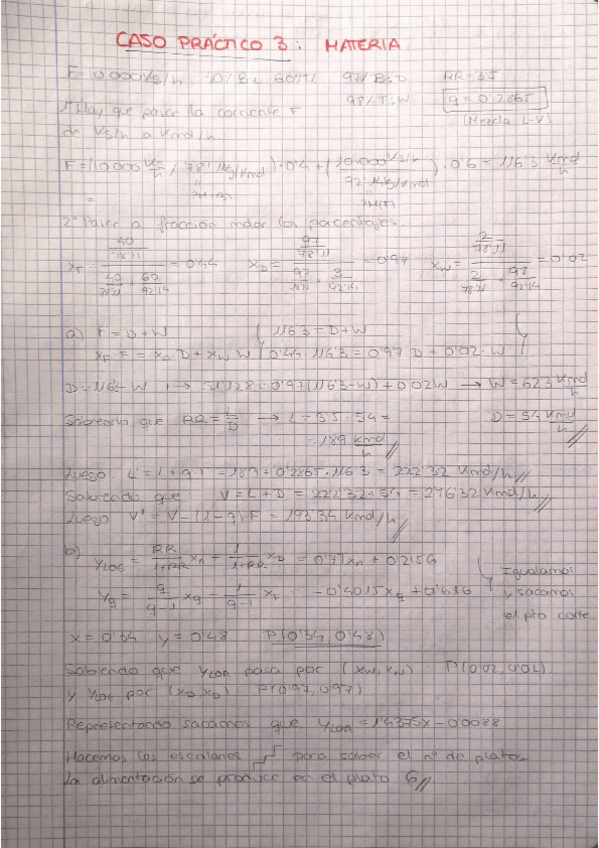 CASO PRÁCTICO 3: MATERIA.
F=10000 Kg/h 40% Bz 60%TL 97% Bz D RR=3'5
98% T W q=0'2865
(Mezcla L-V)
1º Hay que pasar la corriente F
de Kg/h a Kmol/h
F=(10000 Kg/h / 78'11 Kg/Kmol)·0'4+(10.000 Kg/h / 92'14 Kg/Kmol)·0'6=116'3 Kmol/h
PM(B) PM(T)
2º Pasar a fracción molar los porcentajes.
xF = (40/78'11) / (40/78'11 + 60/92'14) = 0'44 xD = (97/78'11) / (97/78'11 + 3/92'14) = 0'97 xW = (2/78'11) / (2/78'11 + 98/92'14) = 0'02
a) F=D+W 116'3=D+W
xF F = xD D + xW W 0'44·116'3=0'97 D + 0'02·W
D=116'3-W → = 0'97(116'3-W)+0'02W → W=62'3 Kmol/h
Sabiendo que RR=L/D → L=3'5·54= D=54 Kmol/h
=189 Kmol/h
Luego L'=L+q·F=189+0'2865·116'3=222'32 Kmol/h
Sabiendo que: V=L+D=222'32+54=276'32 Kmol/h
Luego V'=V-(1-q)·F=193'34 Kmol/h
b) = RR/1+RR xn + 1/1+RR xD = 0'77xn+0'2156
yq = q/q-1 xq - 1/q-1 xF = -0'4015xq+0'636
Igualamos
y sacamos
el pto corte.
x=0'34 y=0'48 P(0'34, 0'48)
Sabiendo que pasa por (xW, xW) P(0'02, 0'02)
y por (xD, xD) P(0'97, 0'97)
Representando sacamos que = 1'4375x-0'0088
Hacemos los escalones para saber el nº de platos.
La alimentación se produce en el plato 6